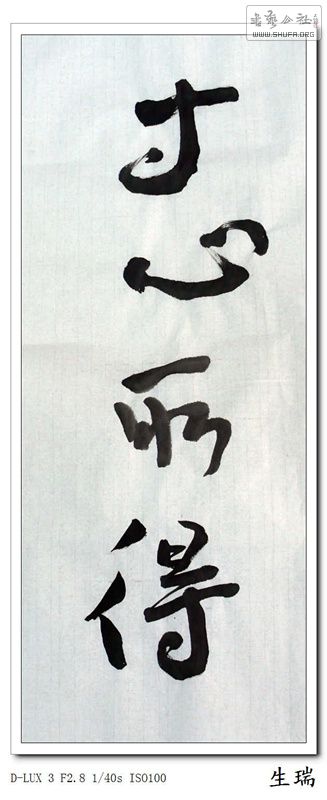 書藝公社
WWW.SHUFA.ORG
寸心所得
D-LUX 3 F2.8 1/40s ISO100
生瑞